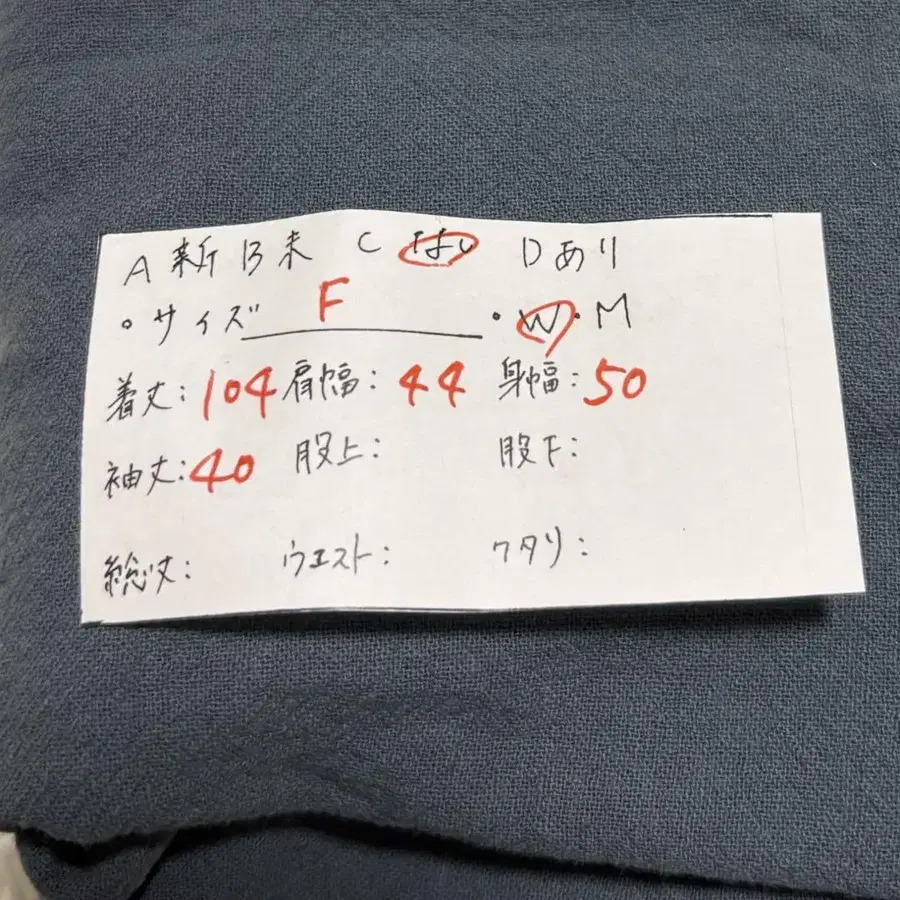 A 新 B 未 C なし D あり
。サイズ F ・W・M
着丈:104 肩幅:44 身幅:50
袖丈:40 股上: 股下:
総丈: ウエスト: ワタリ: